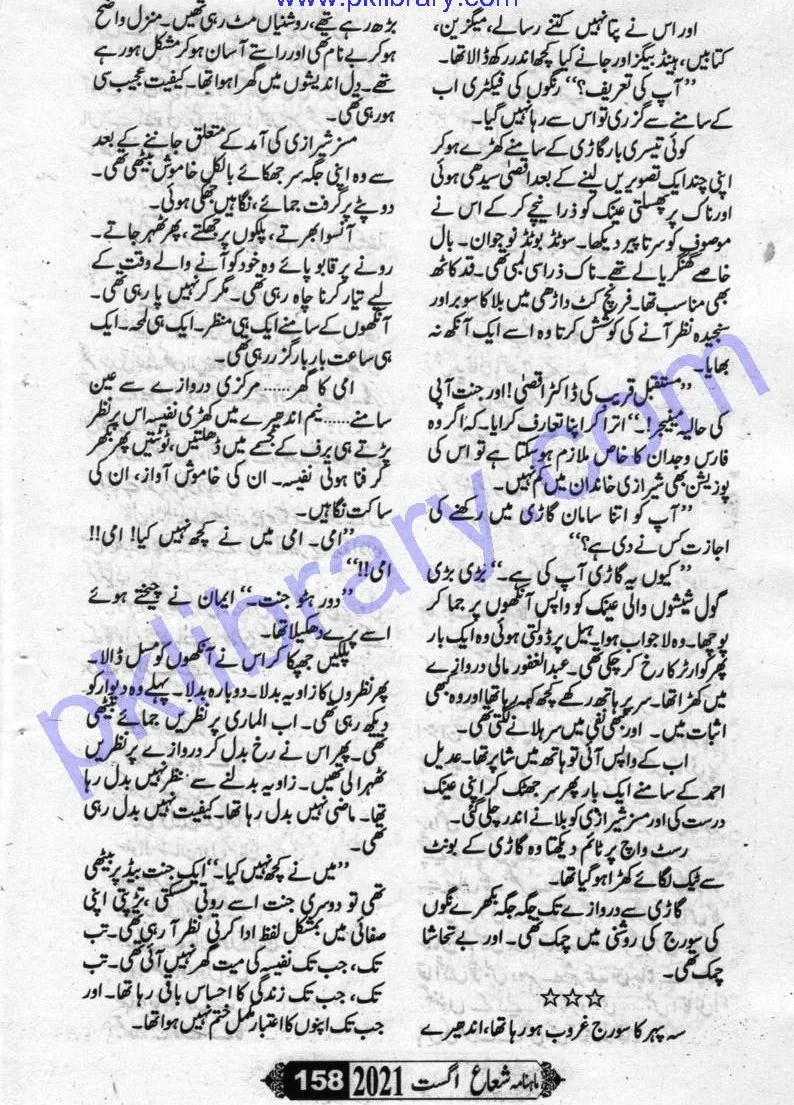 www.pklibrary.com
اور اس نے پتا نہیں کتنے رسالے، میگزین،
کتابیں، ہینڈ بیگز اور جانے کیا کچھ اندر رکھ ڈالا تھا۔
”آپ کی تعریف؟“ رنگوں کی فیکٹری اب
کے سامنے سے گزری تو اس سے رہا نہیں گیا۔
کوئی تیسری بار گاڑی کے سامنے کھڑے ہو کر
اپنی چند ایک تصویریں لینے کے بعد اقصیٰ سیدھی ہوئی
اور ناک پر پھسلتی عینک کو ذرا نیچے کر کے اس نے
موصوف کو سر تا پیر دیکھا۔ سوٹڈ بوٹڈ نوجوان۔ بال
خاصے گھنگریالے تھے۔ ناک ذرا سی لمبی تھی۔ قد کاٹھ
بھی مناسب تھا۔ فرنچ کٹ داڑھی میں بلا کا سوبر اور
سنجیدہ نظر آنے کی کوشش کرتا وہ اسے ایک آنکھ نہ
بھایا۔
”مستقبل قریب کی ڈاکٹر اقصیٰ! اور جنت آپی
کی حالیہ مینیجر!۔“ اترا کر اپنا تعارف کرایا۔ کہ اگر وہ
فارس وجدان کا خاص ملازم ہو سکتا ہے تو اس کی
پوزیشن بھی شیرازی خاندان میں کم نہیں۔
”آپ کو اتنا سامان گاڑی میں رکھنے کی
اجازت کس نے دی ہے؟“
”کیوں یہ گاڑی آپ کی ہے۔“ بڑی بڑی
گول شیشوں والی عینک کو واپس آنکھوں پر جما کر
پوچھا۔ وہ لا جواب ہوا۔ ہیل پر ڈولتی ہوئی وہ ایک بار
پھر کوارٹر کا رخ کر چکی تھی۔ عبدالغفور مالی دروازے
میں کھڑا تھا۔ سر پر ہاتھ رکھے کچھ کہہ رہا تھا اور وہ کبھی
اثبات میں۔ اور کبھی نفی میں سر ہلانے لگتی تھی۔
اب کے واپس آئی تو ہاتھ میں شاپر تھا۔ عدیل
احمر کے سامنے ایک بار پھر سر جھٹک کر اپنی عینک
درست کی اور مسز شیرازی کو بلانے اندر چلی گئی۔
رسٹ واچ پر ٹائم دیکھتا وہ گاڑی کے بونٹ
سے ٹیک لگائے کھڑا ہو گیا تھا۔
گاڑی سے دروازے تک جگہ جگہ بکھرے نگوں
کی سورج کی روشنی میں چمک تھی۔ اور بے تحاشا
چمک تھی۔
☆☆☆
سہ پہر کا سورج غروب ہو رہا تھا، اندھیرے
بڑھ رہے تھے، روشنیاں مٹ رہی تھیں۔ منزل واضح
ہو کر بے نام تھی اور راستے آسان ہو کر مشکل ہو رہے
تھے۔ دل اندیشوں میں گھرا ہوا تھا۔ کیفیت عجیب سی
ہو رہی تھی۔
مسز شیرازی کی آمد کے متعلق جاننے کے بعد
سے وہ اپنی جگہ سر جھکائے بالکل خاموش بیٹھی تھی۔
دوپٹے پر گرفت جمائے، نگاہیں جھکی ہوئی۔
آنسو ابھرتے، پلکوں پر جھکتے، پھر ٹھہر جاتے۔
رونے پر قابو پائے وہ خود کو آنے والے وقت کے
لیے تیار کرنا چاہ رہی تھی۔ مگر کر نہیں پا رہی تھی۔
آنکھوں کے سامنے ایک ہی منظر۔ ایک ہی لمحہ۔ ایک
ہی ساعت بار بار گزر رہی تھی۔
امی کا گھر...... مرکزی دروازے سے عین
سامنے...... نیم اندھیرے میں کھڑی نفیسہ اس پر نظر
پڑتے ہی برف کے مجسمے میں ڈھلتیں، ٹوٹتیں پھر بکھر
کر فنا ہوتی نفیسہ۔ ان کی خاموش آواز، ان کی
ساکت نگاہیں۔
”امی۔ امی میں نے کچھ نہیں کیا! امی!!
امی!!“
”دور ہٹو جنت۔“ ایمان نے چیختے ہوئے
اسے پرے دھکیلا تھا۔
پلکیں جھپکا کر اس نے آنکھوں کو مسل ڈالا۔
پھر نظروں کا زاویہ بدلا۔ دوبارہ بدلا۔ پہلے وہ دیوار کو
دیکھ رہی تھی۔ اب الماری پر نظریں جمائے بیٹھی
تھی۔ پھر اس نے رخ بدل کر دروازے پر نظریں
ٹھہرا لی تھیں۔ زاویہ بدلنے سے منظر نہیں بدل رہا
تھا۔ ماضی نہیں بدل رہا تھا۔ کیفیت نہیں بدل رہی
تھی۔
”میں نے کچھ نہیں کیا۔“ ایک جنت بیڈ پر بیٹھی
تھی تو دوسری جنت اسے روتی سسکتی، تڑپتی اپنی
صفائی میں بمشکل لفظ ادا کرتی نظر آ رہی تھی۔ تب
تک، جب تک نفیسہ کی میت گھر نہیں آئی تھی۔ تب
تک، جب تک زندگی کا احساس باقی رہا تھا۔ اور
جب تک اپنوں کا اعتبار مکمل ختم نہیں ہوا تھا۔
ماہنامہ شعاع اگست 2021 158
pklibrary.com